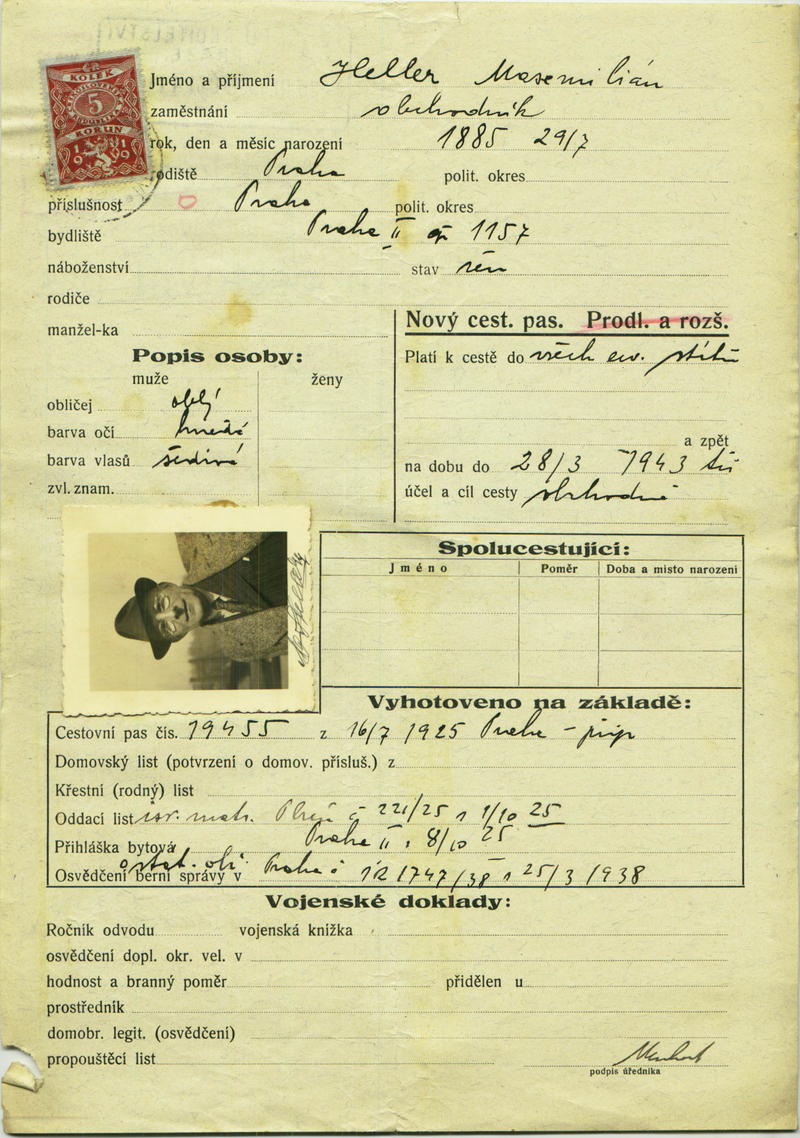 KOLEK
5
KORUN
1919
Jméno a příjmení Heller Maxmilián
zaměstnání obchodník
rok, den a měsíc narození 1885 29/7
rodiště Praha polit. okres
příslušnost Praha polit. okres
bydliště Praha II čp 1157
náboženství stav žen
rodiče
manžel-ka
Nový cest. pas. Prodl. a rozš.
Popis osoby:
muže ženy
Platí k cestě do všech ev. států
obličej oblý
barva očí hnědé
barva vlasů šedivé
zvl. znam.
a zpět
na dobu do 28/3 1943
účel a cíl cesty obchodní
Spolucestující:
Jméno Poměr Doba a místo narození
Vyhotoveno na základě:
Cestovní pas čís. 19455 z 16/7 1925 Praha -
Domovský list (potvrzení o domov. přísluš.) z
Křestní (rodný) list
Oddací list isr. matr. Plzeň č 221/25 1/10 25
Přihláška bytová Praha II 8/10 25
Osvědčení berní správy v Praha 1747/38 25/3 1938
Vojenské doklady:
Ročník odvodu vojenská knížka
osvědčení dopl. okr. vel. v
hodnost a branný poměr přidělen u
prostředník
domobr. legit. (osvědčení)
propouštěcí list
podpis úředníka